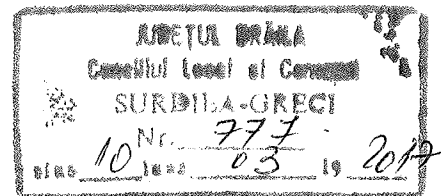 JUDEŢUL BRĂILA
Consiliul Local al Comunei
SURDILA-GRECI
Nr. 777
ziua 10 luna 03 19 2017